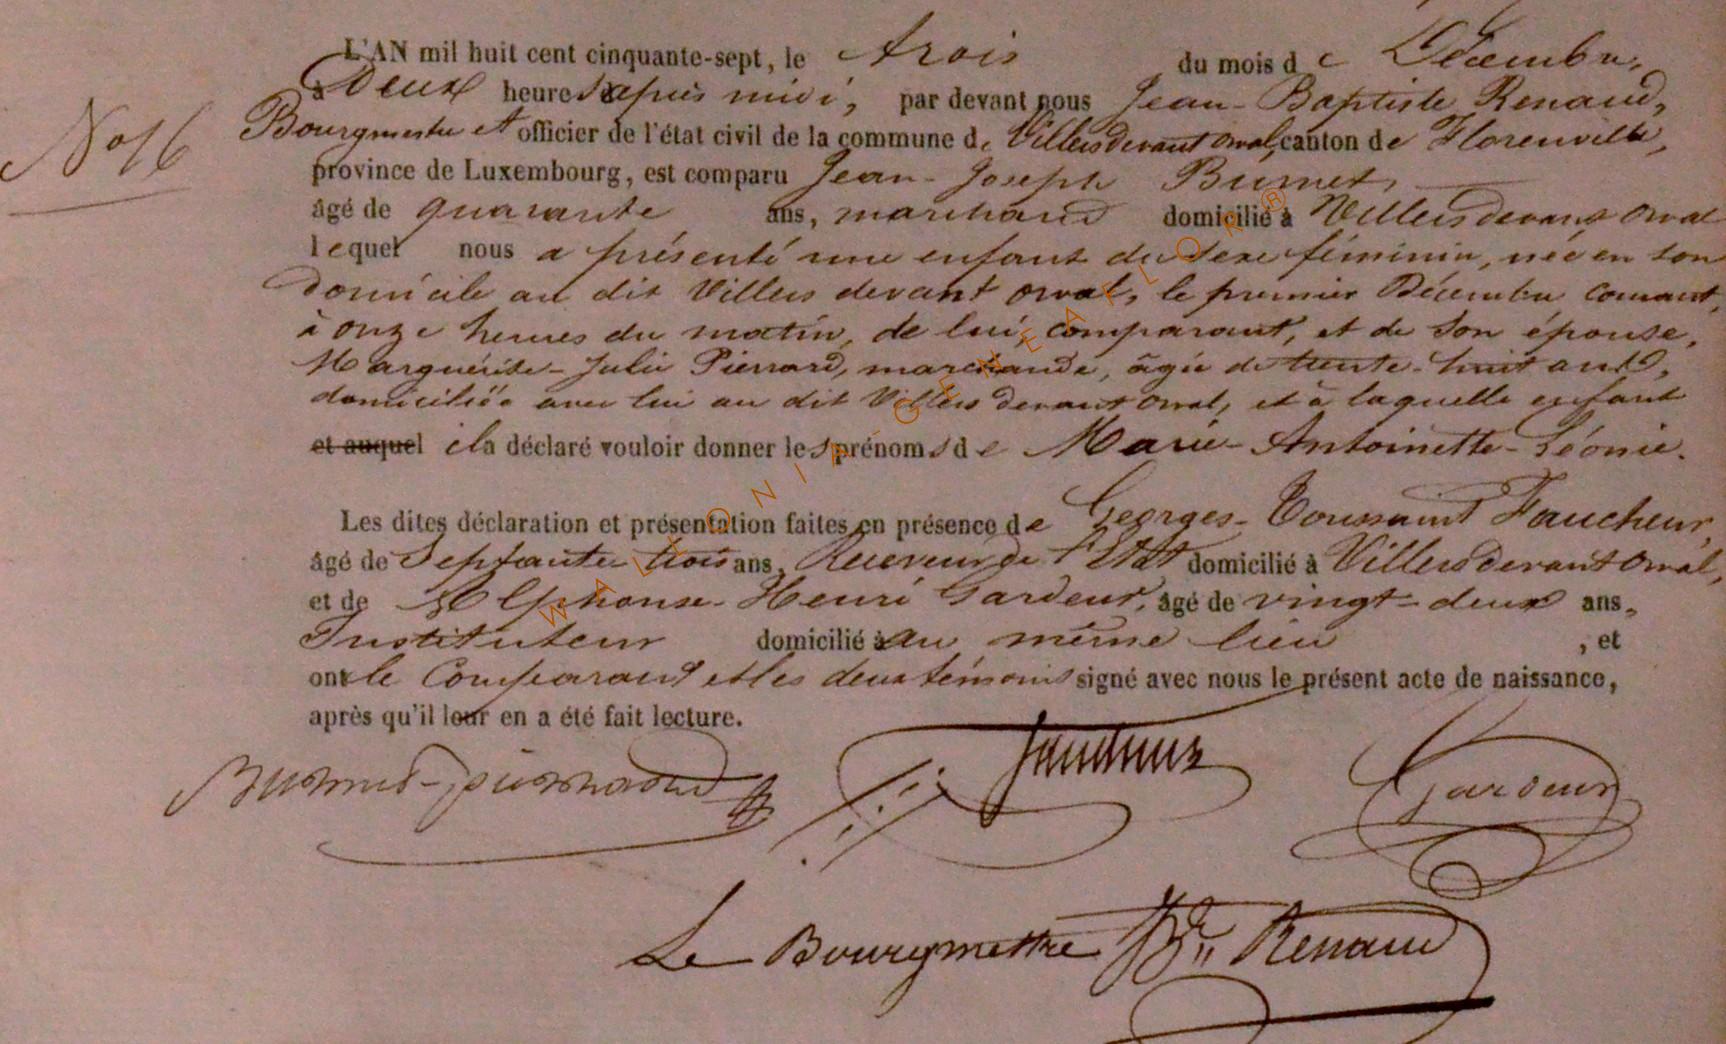 L'AN mil huit cent cinquante-sept, le trois du mois de Décembre,
à Deux heures après midi, par devant nous Jean-Baptiste Renaud,
Bourgmestre et officier de l'état civil de la commune de Villers devant orval, canton de Florenville,
N° 16
province de Luxembourg, est comparu Jean-Joseph Burnet,
âgé de quarante ans, marchand domicilié à Villers devant orval
lequel nous a présenté une enfant du sexe féminin, née en son
domicile au dit Villers devant orval, le premier Décembre courant,
à onze heures du matin, de lui comparant, et de son épouse,
Marguérite-Julie Pierrard, marchande, âgée de trente-huit ans,
domiciliée avec lui au dit Villers devant orval, et à laquelle enfant
et auquel il a déclaré vouloir donner les prénoms de Marie-Antoinette-Léonie.
Les dites déclaration et présentation faites en présence de Georges-Toussaint Faucheur,
âgé de Septante trois ans, Receveur de l'Etat domicilié à Villers devant orval,
et de Alphonse-Henri Gardeur, âgé de vingt-deux ans,
Instituteur domicilié à au même lieu , et
ont le Comparant et les deux témoins signé avec nous le présent acte de naissance,
après qu'il leur en a été fait lecture.
Burnet-pierrard Faucheur Gardeur
Le Bourgmettre JBte Renaud
WALLONIA-GENEALOR®